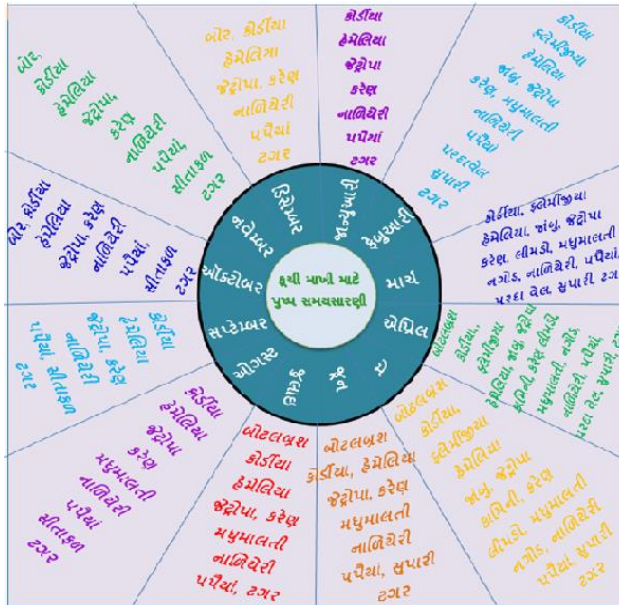 કૂચી માખી માટે
પુષ્પ સમયસારણી
જાન્યુઆરી
ફેબ્રુઆરી
માર્ચ
એપ્રિલ
મે
જૂન
જુલાઇ
ઓગસ્ટ
સપ્ટેમ્બર
ઓક્ટોબર
નવેમ્બર
ડિસેમ્બર
કોર્ડીયા
હેમેલિયા
જેટ્રોપા
કરેણ
નાળિયેરી
પપૈયાં
ટગર
કોર્ડીયા
ફ્લેમીંજીયા
હેમેલિયા
જાંબુ, જેટ્રોપા
કરેણ, મધુમાલતી
નાળિયેરી
પપૈયાં
પરદાવેલ
સુપારી
ટગર
કોર્ડીયા, ફ્લેમીંજીયા
હેમેલિયા, જાંબુ, જેટ્રોપા
કરેણ, લીમડો, મધુમાલતી
નગોડ, નાળિયેરી, પપૈયાં,
પરદા વેલ, સુપારી, ટગર
બોટલબ્રશ
કોર્ડીયા,
ફ્લેમીંજીયા
હેમેલિયા, જાંબુ, જેટ્રોપા
કામિની, કરેણ, લીમડો
મધુમાલતી, નગોડ,
નાળિયેરી, પપૈયાં,
પરદા વેલ, સુપારી, ટગર
બોટલબ્રશ
કોર્ડીયા,
ફ્લેમીંજીયા
હેમેલિયા
જાંબુ, જેટ્રોપા
કામિની, કરેણ
લીમડો, મધુમાલતી
નગોડ, નાળિયેરી
પપૈયાં, સુપારી
ટગર
બોટલબ્રશ
કોર્ડીયા, હેમેલિયા
જેટ્રોપા, કરેણ
મધુમાલતી
નાળિયેરી
પપૈયાં, સુપારી
ટગર
બોટલબ્રશ
કોર્ડીયા
હેમેલિયા
જેટ્રોપા, કરેણ
મધુમાલતી
નાળિયેરી
પપૈયાં, ટગર
કોર્ડીયા
હેમેલિયા
જેટ્રોપા
કરેણ
મધુમાલતી
નાળિયેરી
પપૈયાં
સીતાફળ
ટગર
કોર્ડીયા
હેમેલિયા
જેટ્રોપા, કરેણ
નાળિયેરી
પપૈયાં, સીતાફળ
ટગર
બોર, કોર્ડીયા
હેમેલિયા
જેટ્રોપા, કરેણ
નાળિયેરી
પપૈયાં,
સીતાફળ
ટગર
બોર,
કોર્ડીયા
હેમેલિયા
જેટ્રોપા,
કરેણ
નાળિયેરી
પપૈયાં,
સીતાફળ
ટગર
બોર, કોર્ડીયા
હેમેલિયા
જેટ્રોપા, કરેણ
નાળિયેરી
પપૈયાં
ટગર